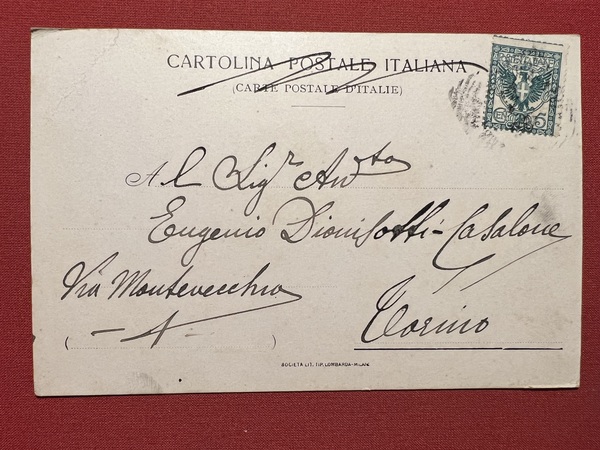 CARTOLINA POSTALE ITALIANA
(CARTE POSTALE D'ITALIE)
5
Al Sigr Avvto
Eugenio Dionisotti-Casalone
Via Montevecchio
( )
Torino
SOCIETÀ LIT. TIP. LOMBARDA-MILANO